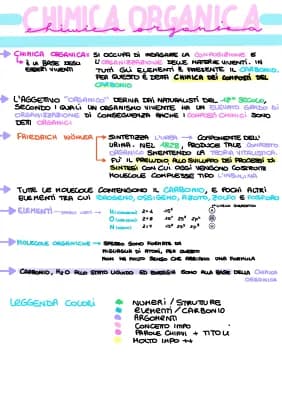 CHIMICA ORGANICA
chimica organica
CHIMICA ORGANICA: SI OCCUPA DI INDAGARE LA COMPOSIZIONE E
↳ È LA BASE DEGLI L'ORGANIZZAZIONE DELLE MATERIE VIVENTI. IN
ESSERI VIVENTI TUTI GLI ELEMENTI È PRESENTE IL CARBONIO.
PER QUESTO È DETTA CHIMICA DEI COMPOSTI DEL
CARBONIO
L'AGGETIVO "ORGANICO" DERIVA DAI NATURALISTI DEL 18° SECOLO,
SECONDO I QUALI UN ORGANISMO VIVENTE HA UN ELEVATO GRADO DI
ORGANIZZAZIONE DI CONSEGUENZA ANCHE I COMPOSTI CHIMICI SONO
DETTI ORGANICI
FRIEDRICH WÖHLER SINTETIZZA L'UREA → COMPONENTE DELL'
URINA. NEL 1828, PRODUCE TALE COMPOSTO
ORGANICO SMENTENDO LA TEORIA VITALISTICA
FU IL PRELUDIO ALLO SVILUPPO DEI PROCESSI DI
SINTESI CON CUI OGGI VENGONO COSTRUITE
MOLECOLE COMPLESSE TIPO L'INSULINA
TUTTE LE MOLECOLE CONTENGONO IL CARBONIO, E POCHI ALTRI
ELEMENTI TRA CUI IDROGENO, OSSIGENO, AZOTO, ZOLFO E FOSFORO
ELEMENTI
MOLECOLE ORGANICHE → SPESSO SONO FORMATE DA
MIGLIAIA DI ATOMI, PER QUESTO
NON HA MOLTO SENSO CHE ABBIANO UNA FORMULA
CARBONIO, H2O ALLO STATO LIQUIDO ED ENERGIA SONO ALLA BASE DELLA CHIMICA
ORGANICA
LEGGENDA COLORI
NUMERI / STRUTTURE
ELEMENTI / CARBONIO
ARGOMENTI
CONCETTO IMPO
PAROLE CHIAVI + TITOLI
MOLTO IMPO ++